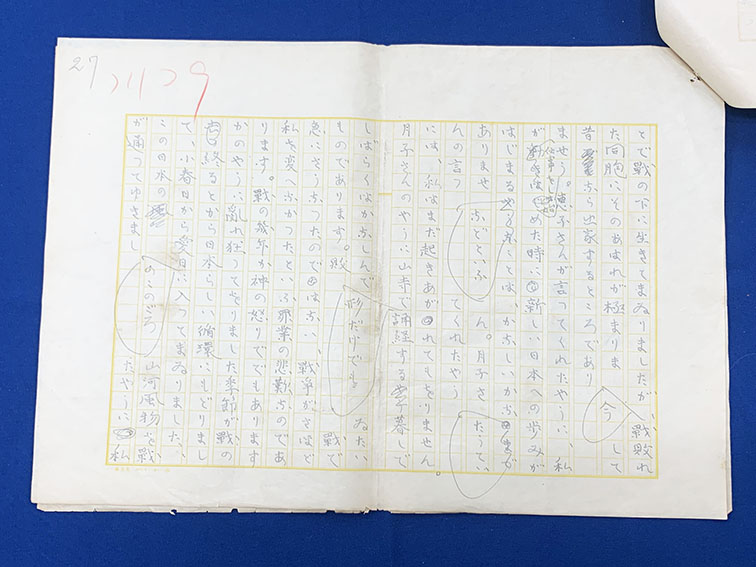 27
とで戰の下に生きてまゐりましたが、戰敗れ
た同胞にそのあはれが極まりま して
今
昔 なら出家するところであり
ませう。 子さんが言つてくれたやうに、私
が 時に新しい日本への歩みが
はじまる ことは、かなしいかな
たうてい
ありませ ん。月子さ
などといふ
んの言つ てくれたやう
には、私はまだ起きあがれてもをりません
月子さんのやうに山寺で誦経する 暮しで
しばらくはかなしんで ゐたい
形だけでも
ものであります。敗 戰で
急にさうなつたのではない、戰爭がさほど
私を変へなかつたといふ罪業の悲歎なのであ
ります。戰の幾年か神の怒りででもあります
かのやうに乱れ狂つてをりました季節が戰の
終るとから日本らしい循環にもどりまし
て、小春日から冬日に入つてまゐりました、
この日本の 山河風物を戰
のこのごろ
が通つてゆきまし たやうに 私